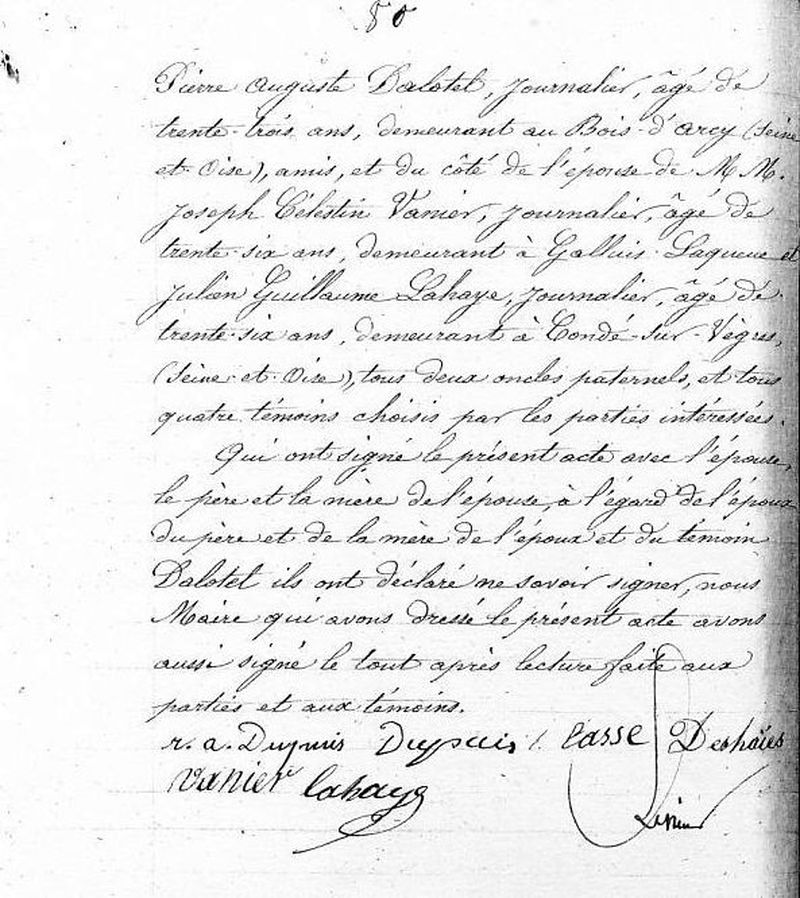 80
Pierre Auguste Dalotel, journalier, âgé de
trente-trois ans, demeurant au Bois-d'Arcy (Seine
et-Oise), amis, et du côté de l'épouse de M.M.
Joseph Célestin Vanier, journalier, âgé de
trente-six ans, demeurant à Galluis-Laqueue et
Julien Guillaume Lahaye, journalier, âgé de
trente-six ans, demeurant à Condé-sur-Vègres,
(Seine-et-Oise), tous deux oncles paternels, et tous
quatre témoins choisis par les parties intéressées.
Qui ont signé le présent acte avec l'épouse,
le père et la mère de l'épouse, à l'égard de l'époux
du père et de la mère de l'époux et du témoin
Dalotel ils ont déclaré ne savoir signer, nous
Maire qui avons dressé le présent acte avons
aussi signé le tout après lecture faite aux
parties et aux témoins.
r. a. Dupuis Dupuis Casse Deshaies
Vanier Lahaye